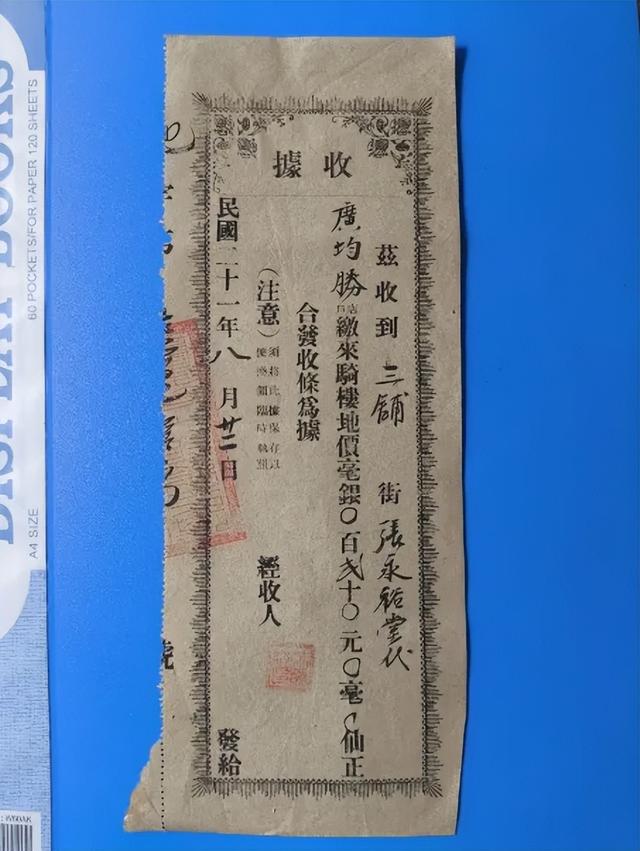 收據
茲收到 三舖 街 張永裕堂代
廣均勝 繳來騎樓地價毫銀〇百弍十〇元〇毫〇仙正
合發收條為據
(注意) 須將此據保存以
領臨時執照
經收人
民國二十一年八月廿二日 發給
號
DISPLAY BOOKS
60 POCKETS/FOR PAPER 120 SHEETS
A4 SIZE